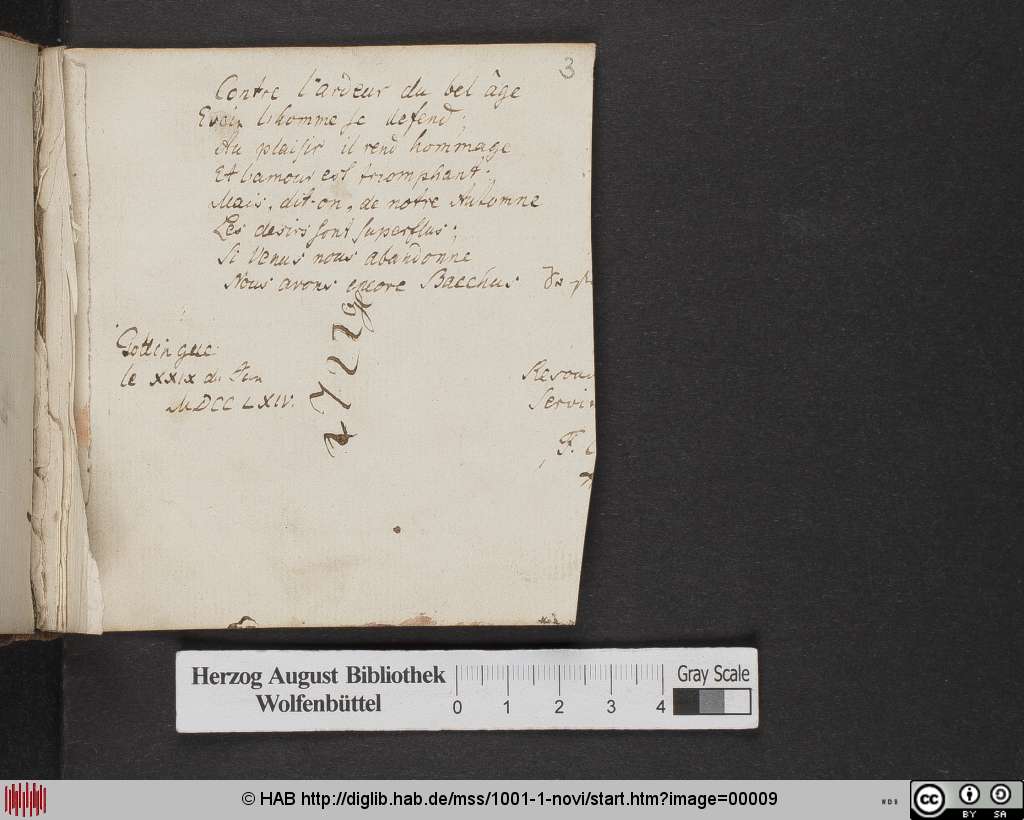 3
Contre l'ardeur du bel âge
l'homme se defend;
Au plaisir il rend hommage
Et l'amour est triomphant.
Mais, dit-on, de notre Automne
Les desirs sont superflus;
Si Venus nous abandonne
Nous avons encore Bacchus.
Gottingue
le XXIX de Jun
MDCCLXIV.
Resou
Servi
F.
Herzog August Bibliothek
Wolfenbüttel
0 1 2 3 4
Gray Scale
© HAB http://diglib.hab.de/mss/1001-1-novi/start.htm?image=00009
cc BY SA